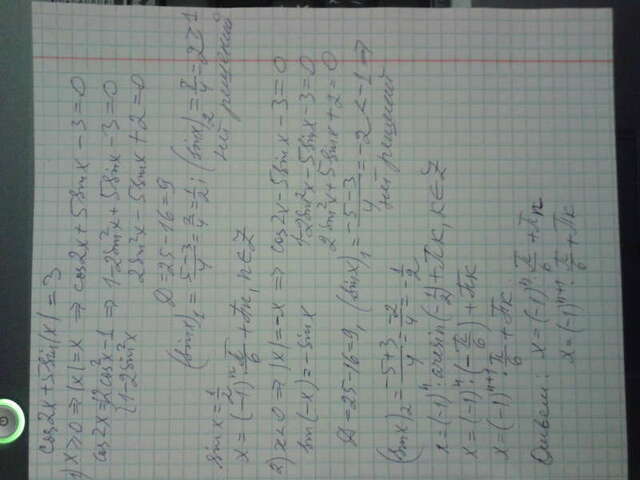 cos2x+5sin|x|=3
1) x≥0 ⇒ |x|=x ⇒ cos2x+5sinx-3=0
cos2x=[2cos²x-1 ⇒ 1-2sin²x+5sinx-3=0
[1-2sin²x 2sin²x-5sinx+2=0
D=25-16=9
(sinx)₁=(5-3)/4=2/4=1/2; (sinx)₂=8/4=2>1
нет решений
sinx=1/2
x=(-1)ⁿ π/6+πn, n∈Z
2) x<0 ⇒ |x|=-x ⇒ cos2x-5sinx-3=0
sin(-x)=-sinx 1-2sin²x-5sinx-3=0
2sin²x+5sinx+2=0
D=25-16=9, (sinx)₁=(-5-3)/4=-2<-1 ⇒
нет решений
(sinx)₂=(-5+3)/4=-2/4=-1/2
x=(-1)ⁿ·arcsin(-1/2)+πk, k∈Z
x=(-1)ⁿ·(-π/6)+πk
x=(-1)ⁿ⁺¹ π/6+πk
Ответ: x=(-1)ⁿ π/6+πn
x=(-1)ⁿ⁺¹·π/6+πk